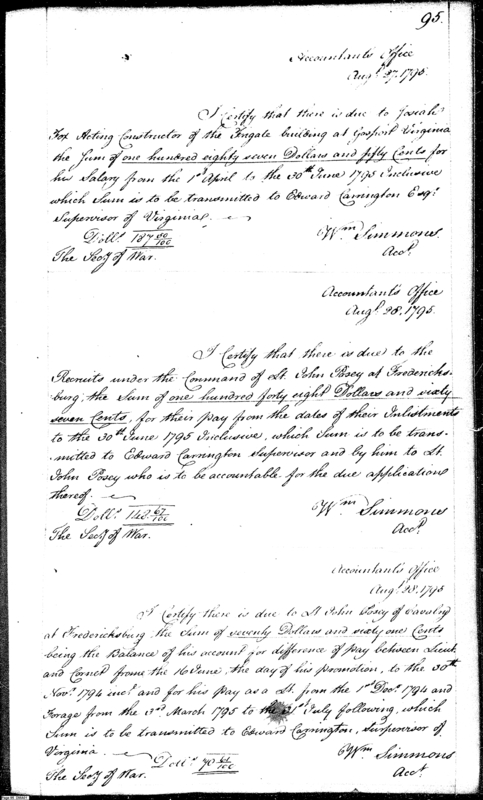 95.
Accountants Office
Augt. 27. 1795.
I Certify that there is due to Josiah
Fox Acting Constructor of the Frigate building at Gosport Virginia
the Sum of one hundred eighty seven Dollars and fifty Cents for
his Salary from the 1st April to the 30th June 1795 Inclusive
which Sum is to be transmitted to Edward Carrington Esqr.
Supervisor of Virginia.
Dolls. 187 50/100
Wm. Simmons
The Secy of War.
Acct.
Accountants Office
Augt. 28. 1795.
I Certify that there is due to the
Recruits under the Command of Lt. John Posey at Fredericks-
burg, the Sum of one hundred forty eight Dollars and sixty
seven Cents, for their pay from the dates of their Inlistments
to the 30th June 1795 Inclusive, which Sum is to be trans-
mitted to Edward Carrington Supervisor and by him to Lt.
John Posey who is to be accountable for the due application
thereof.
Dolls. 148 67/100
Wm. Simmons
The Secy of War.
Acct.
Accountants Office
Augt. 28. 1795
I Certify there is due to Lt John Posey of Cavalry
at Fredericksburg the Sum of seventy Dollars and sixty one Cents
being the Balance of his account for difference of pay between Lieut.
and Cornet from the 16 June, the day of his promotion, to the 30th
Novr. 1794 inct. and for his Pay as a Lt. from the 1st Decr. 1794 and
Forage from the 3rd March 1795 to the 31st July following, which
Sum is to be transmitted to Edward Carrington, Surpervisor of
Virginia
Dolls. 70 61/100
Wm. Simmons
The Secy of War.
Acct.